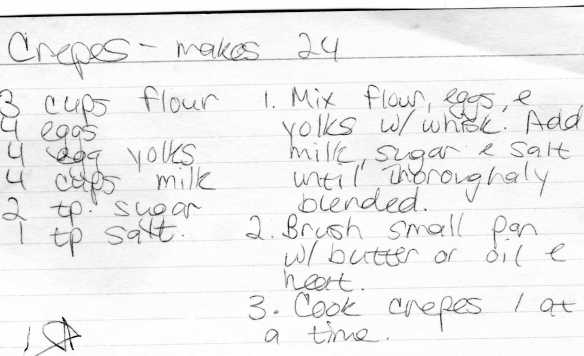 Crepes - makes 24
3 cups flour
4 eggs
4 egg yolks
4 cups milk
2 tp. sugar
1 tp salt.
1. Mix flour, eggs, &
yolks w/ whisk. Add
milk, sugar & salt
until thoroughaly
blended.
2. Brush small pan
w/ butter or oil &
heat.
3. Cook crepes 1 at
a time.